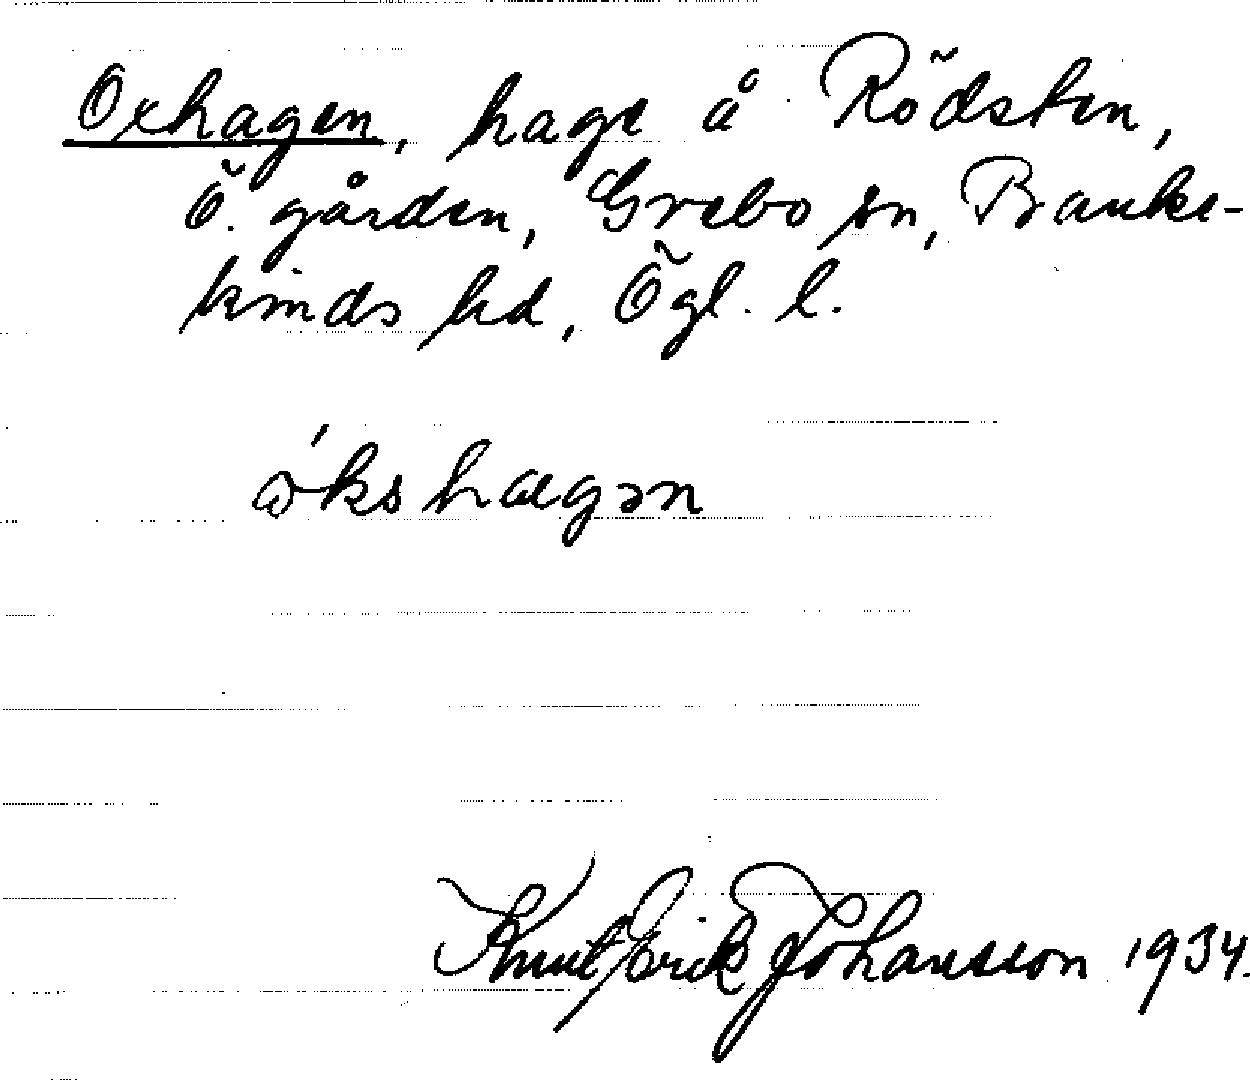 Oxhagen, hage å Rödsten,
Ö. gården, Grebo sn, Banke-
kinds hd, Ögl. l.
ώkshægən
Knut Erik Johansson 1934.